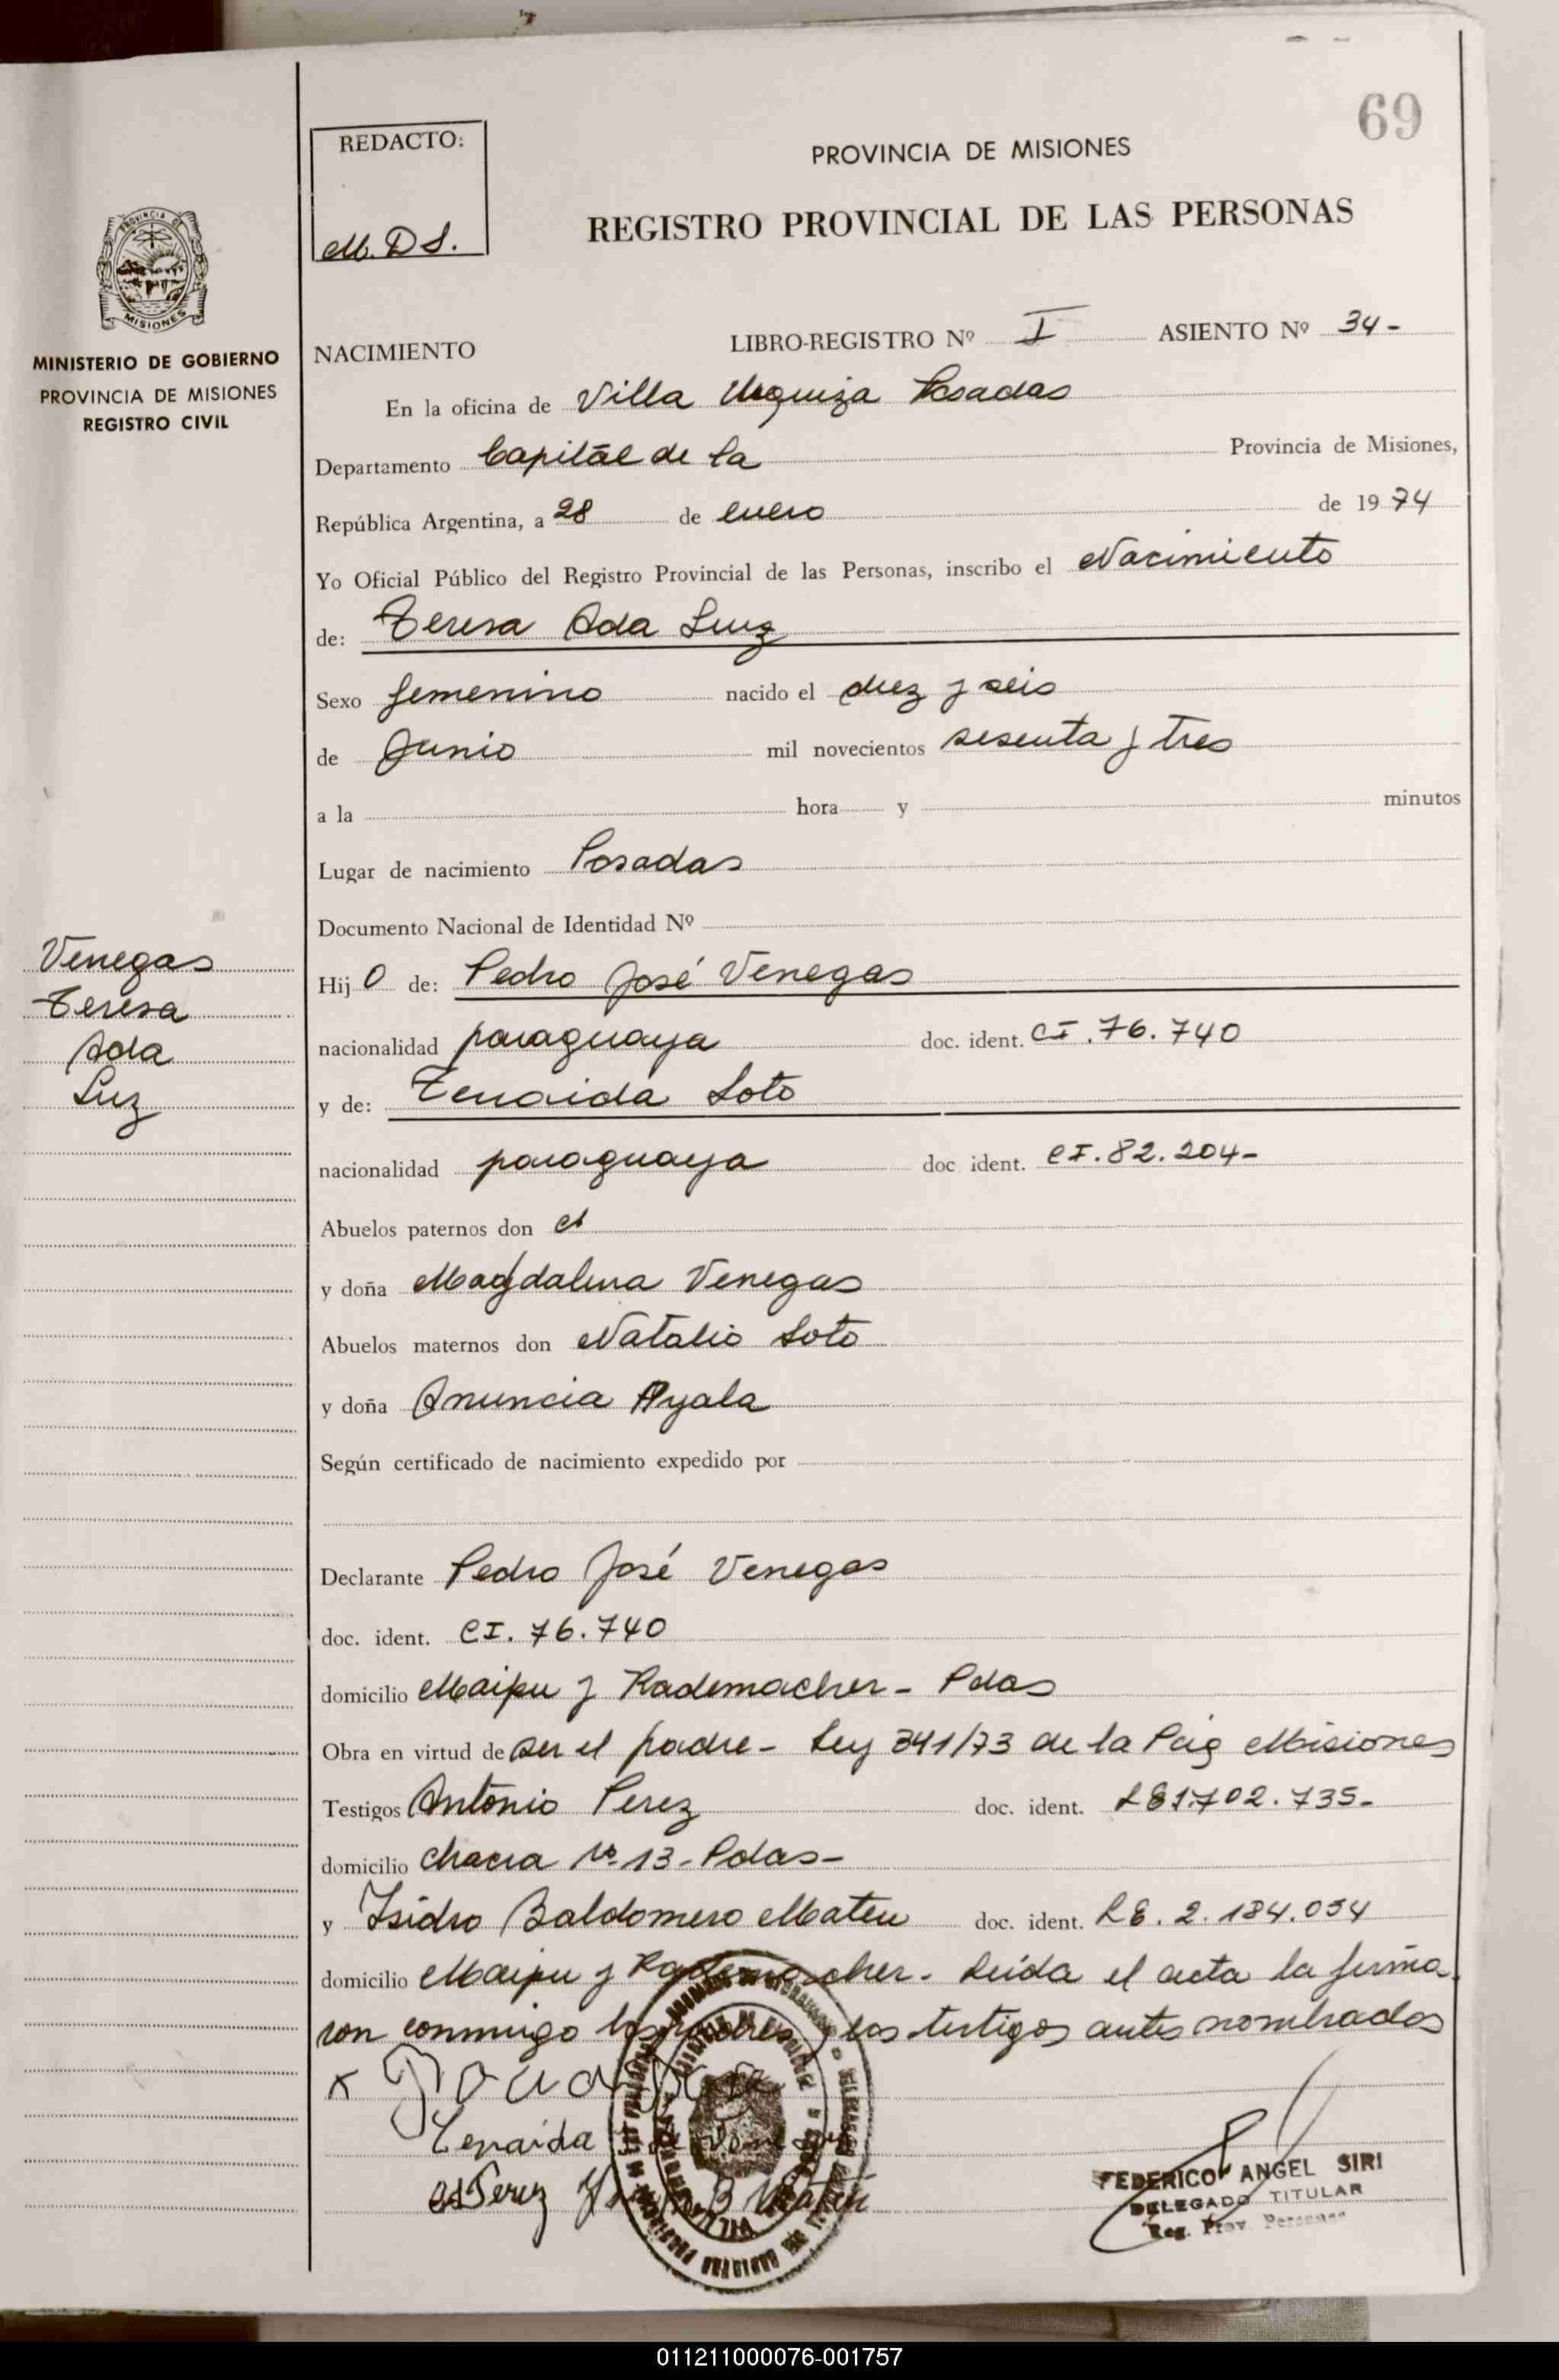 69
REDACTO:
M. D S.
PROVINCIA DE MISIONES
REGISTRO PROVINCIAL DE LAS PERSONAS
PROVINCIA DE
MISIONES
MINISTERIO DE GOBIERNO
PROVINCIA DE MISIONES
REGISTRO CIVIL
NACIMIENTO LIBRO-REGISTRO Nº I ASIENTO Nº 34-
En la oficina de Villa Urquiza Posadas
Departamento Capital de la Provincia de Misiones,
República Argentina, a 28 de enero de 1974
Yo Oficial Público del Registro Provincial de las Personas, inscribo el Nacimiento
de: Teresa Ada Luz
Sexo femenino nacido el diez y seis
de Junio mil novecientos sesenta y tres
a la hora y minutos
Lugar de nacimiento Posadas
Documento Nacional de Identidad Nº
Venegas
Teresa
Ada
Luz
Hij O de: Pedro José Venegas
nacionalidad paraguaya doc. ident. CI. 76.740
y de: Zenaida Soto
nacionalidad paraguaya doc ident. CI. 82.204-
Abuelos paternos don
y doña Magdalena Venegas
Abuelos maternos don Natalio Soto
y doña Anuncia Ayala
Según certificado de nacimiento expedido por
Declarante Pedro José Venegas
doc. ident. CI. 76.740
domicilio Maipu y Rademacher - Pdas
Obra en virtud de ser el padre - Ley 341/73 de la Pcia Misiones
Testigos Antonio Perez doc. ident. LE 1.702.735-
domicilio Chacra Nº 13 - Pdas -
y Isidro Baldomero Mateu doc. ident. LE. 2.184.054
domicilio Maipu y Rademacher. Leida el acta la firma
ron conmigo los padres y los testigos antes nombrados
Zenaida
A Perez B Mateu
FEDERICO ANGEL SIRI
DELEGADO TITULAR
Reg. Prov. Personas
011211000076-001757